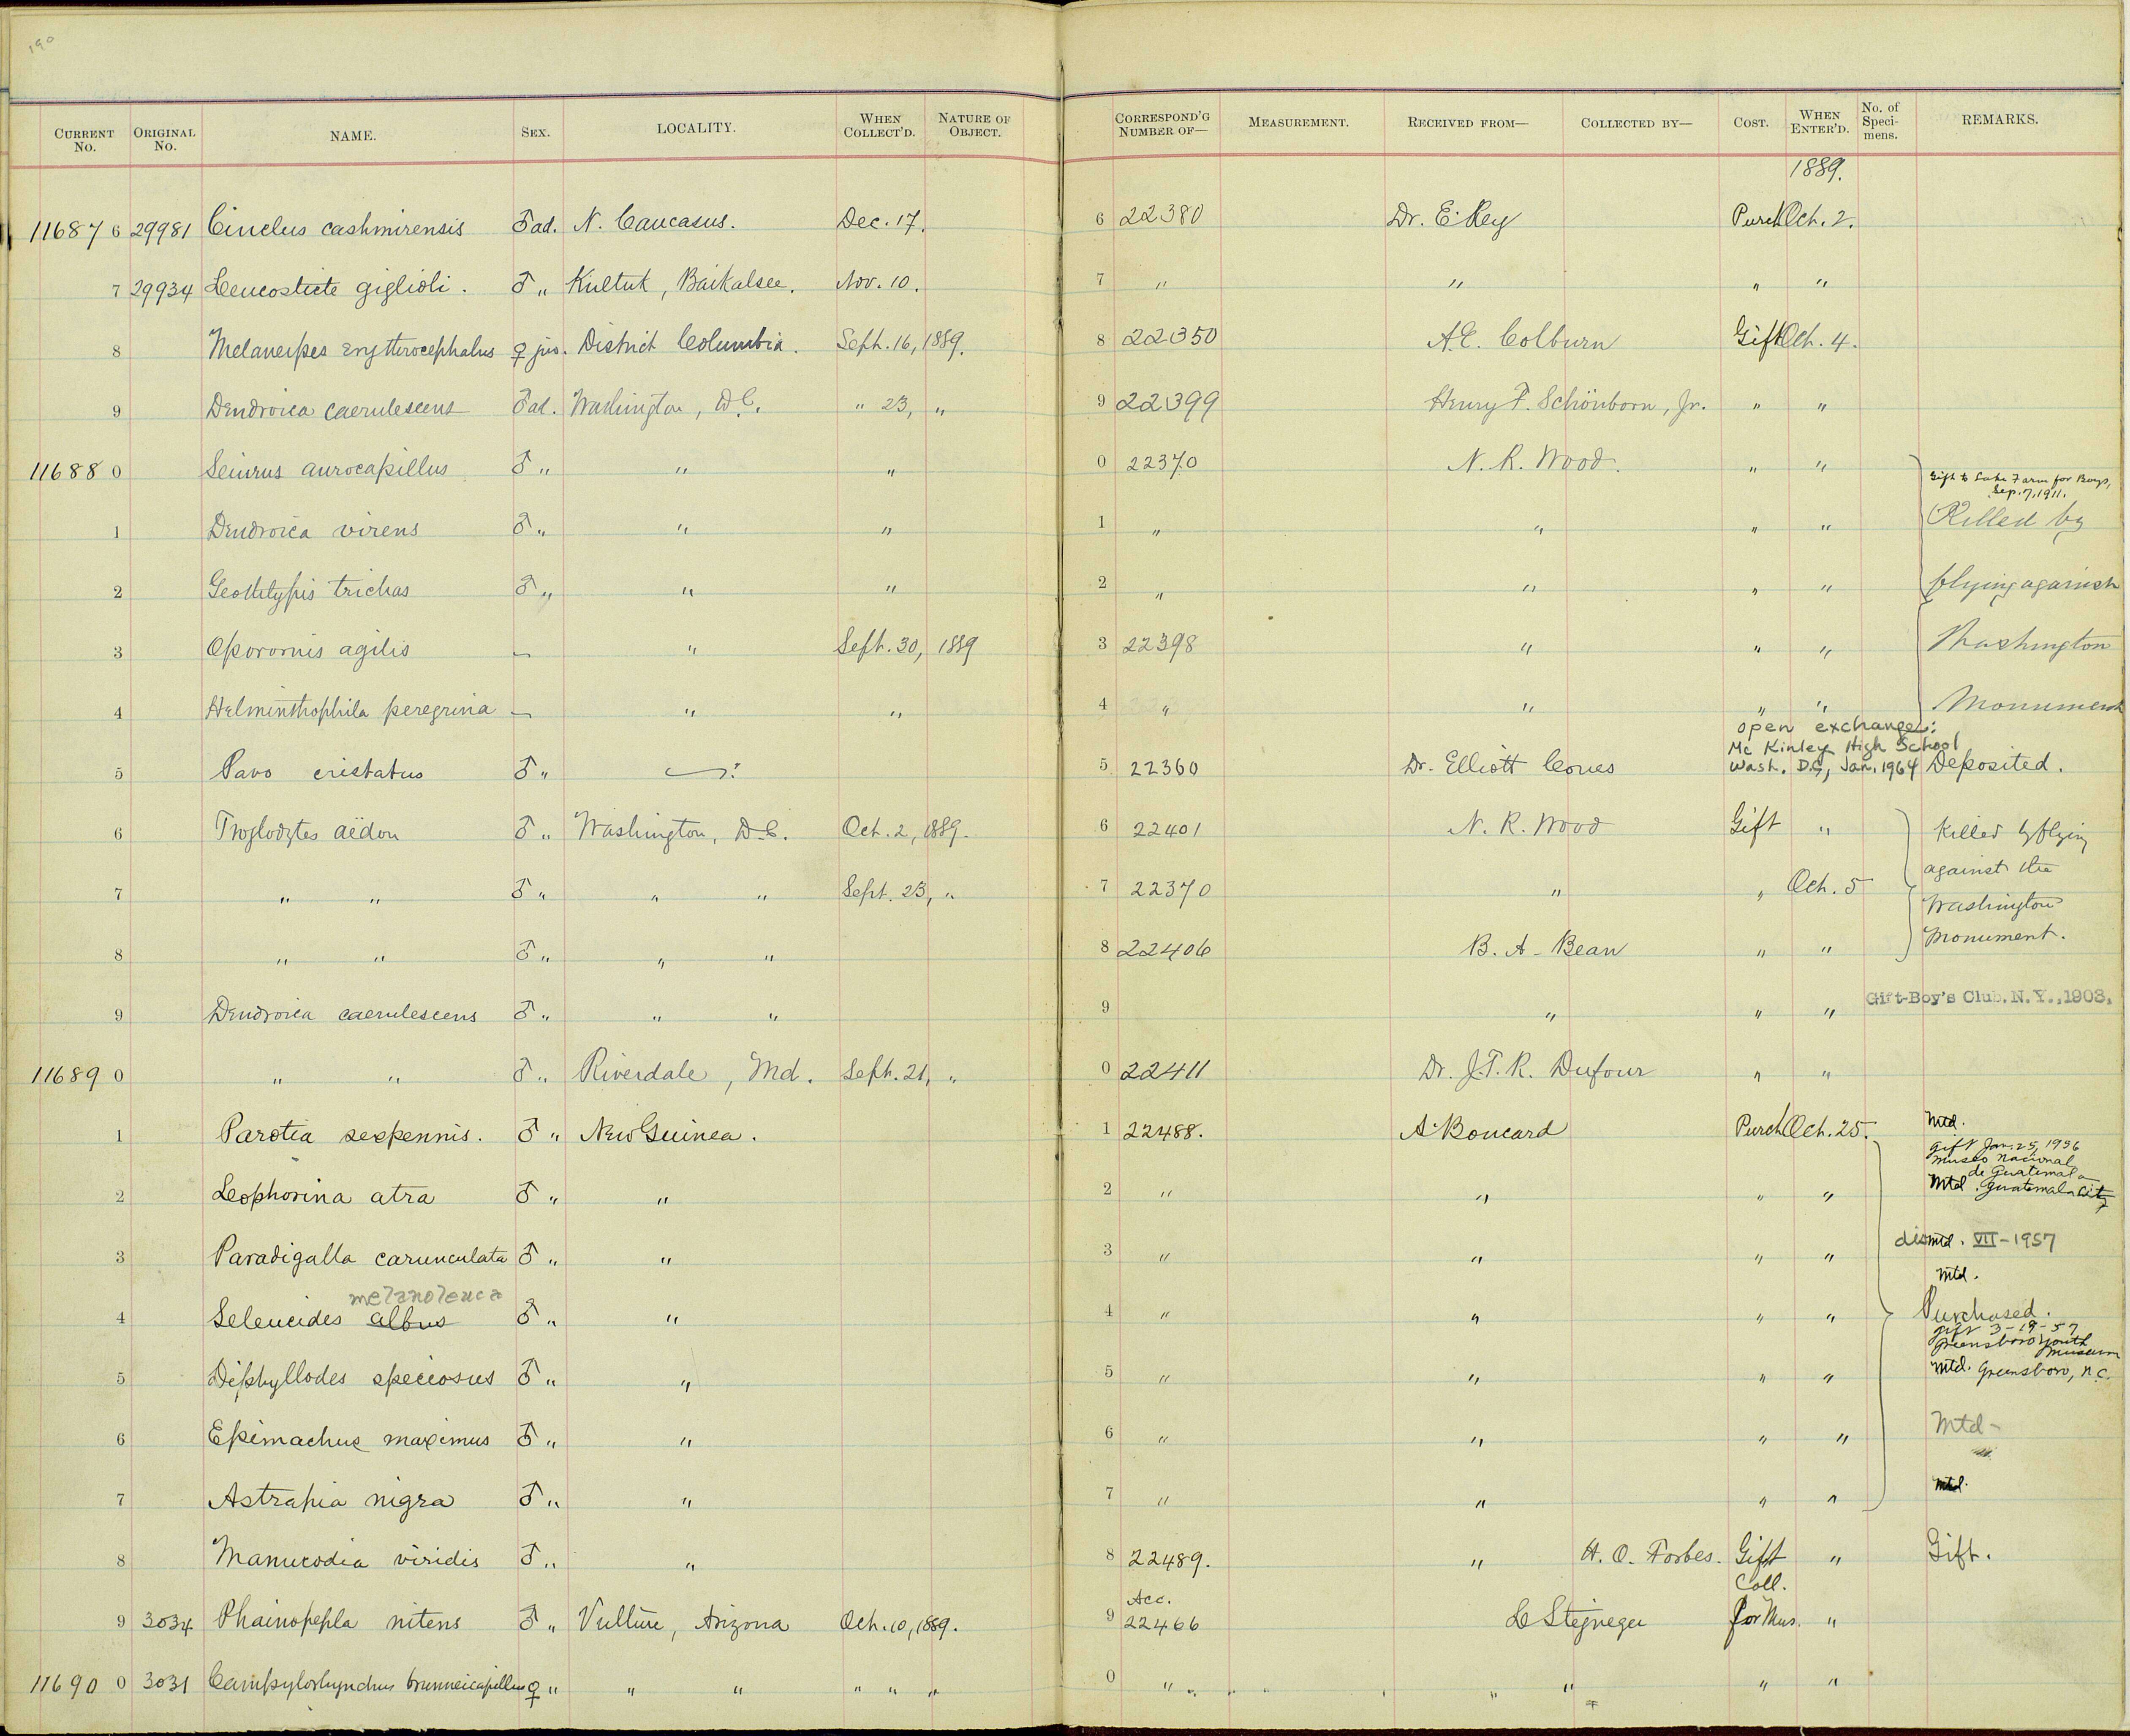 190
CURRENT No. ORIGINAL No. NAME. SEX. LOCALITY. WHEN COLLECT'D. NATURE OF OBJECT. CORRESPOND'G NUMBER OF— MEASUREMENT. RECEIVED FROM— COLLECTED BY— COST. WHEN ENTER'D. No. of Speci-mens. REMARKS.
1889.
11687 6 29981 Cinclus cashmirensis ♂ ad. N. Caucasus. Dec. 17. 6 22380 Dr. E. Rey Purch Oct. 2.
7 29934 Leucosticte giglioli. ♂ " Kultuk, Baikalsee. Nov. 10. 7 " " " "
8 Melanerpes erythrocephalus ♀ juv. District Columbia. Sept. 16, 1889. 8 22350 A.E. Colburn Gift Oct. 4.
9 Dendroica caerulescens ♂ ad. Washington, D.C. " 23, " 9 22399 Henry F. Schönborn, Jr. " "
11688 0 Seiurus aurocapillus ♂ " " " 0 22370 N. R. Wood. " "
Gift to Lake Farm for Boys, Sep. 7, 1911.
1 Dendroica virens ♂ " " " 1 " " " " Killed by
2 Geothlypis trichas ♂ " " " 2 " " " " flying against
3 Oporornis agilis — " Sept. 30, 1889 3 22398 " " " Washington
4 Helminthophila peregrina — " " 4 " " " " Monument
open exchange:
Mc Kinley High School
5 Pavo cristatus ♂ " —? 5 22360 Dr. Elliott Coues Wash. D.C., Jan. 1964 Deposited.
6 Troglodytes aëdon ♂ " Washington, D.C. Oct. 2, 1889. 6 22401 N. R. Wood Gift " Killed by flying
against the
7 " " ♂ " " " Sept. 23, " 7 22370 " " Oct. 5 Washington
8 " " ♂ " " " 8 22406 B. A. Bean " " Monument.
9 Dendroica caerulescens ♂ " " " 9 " " " Gift-Boy's Club, N.Y., 1903.
11689 0 " " ♂ " Riverdale, Md. Sept. 21, " 0 22411 Dr. J.T.R. Dufour " "
1 Parotia sexpennis. ♂ " New Guinea. 1 22488. A. Boucard Purch Oct. 25. Mtd.
gift Jan. 25, 1936
Museo Nacional
de Guatemala
2 Lophorina atra ♂ " " 2 " " " " Mtd. Guatemala City
3 Paradigalla carunculata ♂ " " 3 " " " " dismtd. VII-1957
melanoleuca
Mtd.
4 Seleucides albus ♂ " " 4 " " " " Purchased.
gift 3-19-57
Greensboro Youth
Museum
5 Diphyllodes speciosus ♂ " " 5 " " " " Mtd. Greensboro, N.C.
6 Epimachus maximus ♂ " " 6 " " " " Mtd-
7 Astrapia nigra ♂ " " 7 " " " " Mtd.
8 Manucodia viridis ♂ " " 8 22489. " H. O. Forbes. Gift " Gift.
Acc. Coll.
9 3034 Phainopepla nitens ♂ " Vulture, Arizona Oct. 10, 1889. 9 22466 L Stejneger for Mus. "
11690 0 3031 Campylorhynchus brunneicapillus ♀ " " " " " " 0 " " " "